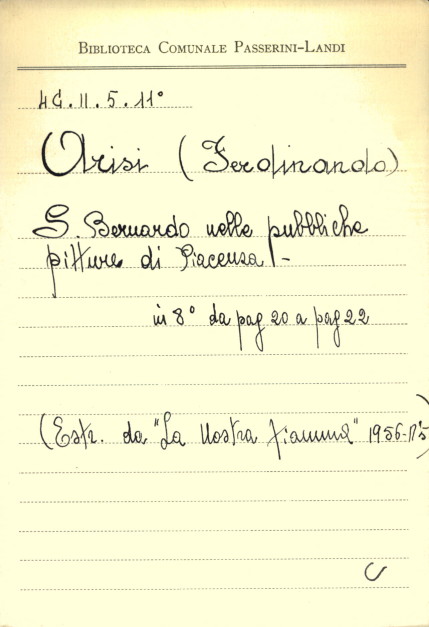 BIBLIOTECA COMUNALE PASSERINI-LANDI
4G.II.5.11°
Arisi (Ferdinando)
S. Bernardo nelle pubbliche
pitture di Piacenza -
in 8° da pag 20 a pag 22
(Estr. da "La Nostra fiamma" 1956-n°5)
C